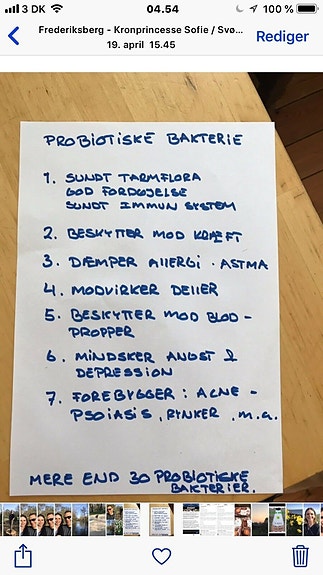 3 DK
04.54
100 %
Frederiksberg - Kronprincesse Sofie / Svø...
19. april 15.45
Rediger
PROBIOTISKE BAKTERIE
1. SUNDT TARMFLORA
GOD FORDØJELSE
SUNDT IMMUN SYSTEM
2. BESKYTTER MOD KRÆFT
3. DÆMPER ALLERGI . ASTMA
4. MODVIRKER DELLER
5. BESKYTTER MOD BLOD-
PROPPER
6. MINDSKER ANGST &
DEPRESSION
7. FOREBYGGER : ACNE -
PSOIASIS , RYNKER . m.a.
MERE END 30 PROBIOTISKE
BAKTERIER.